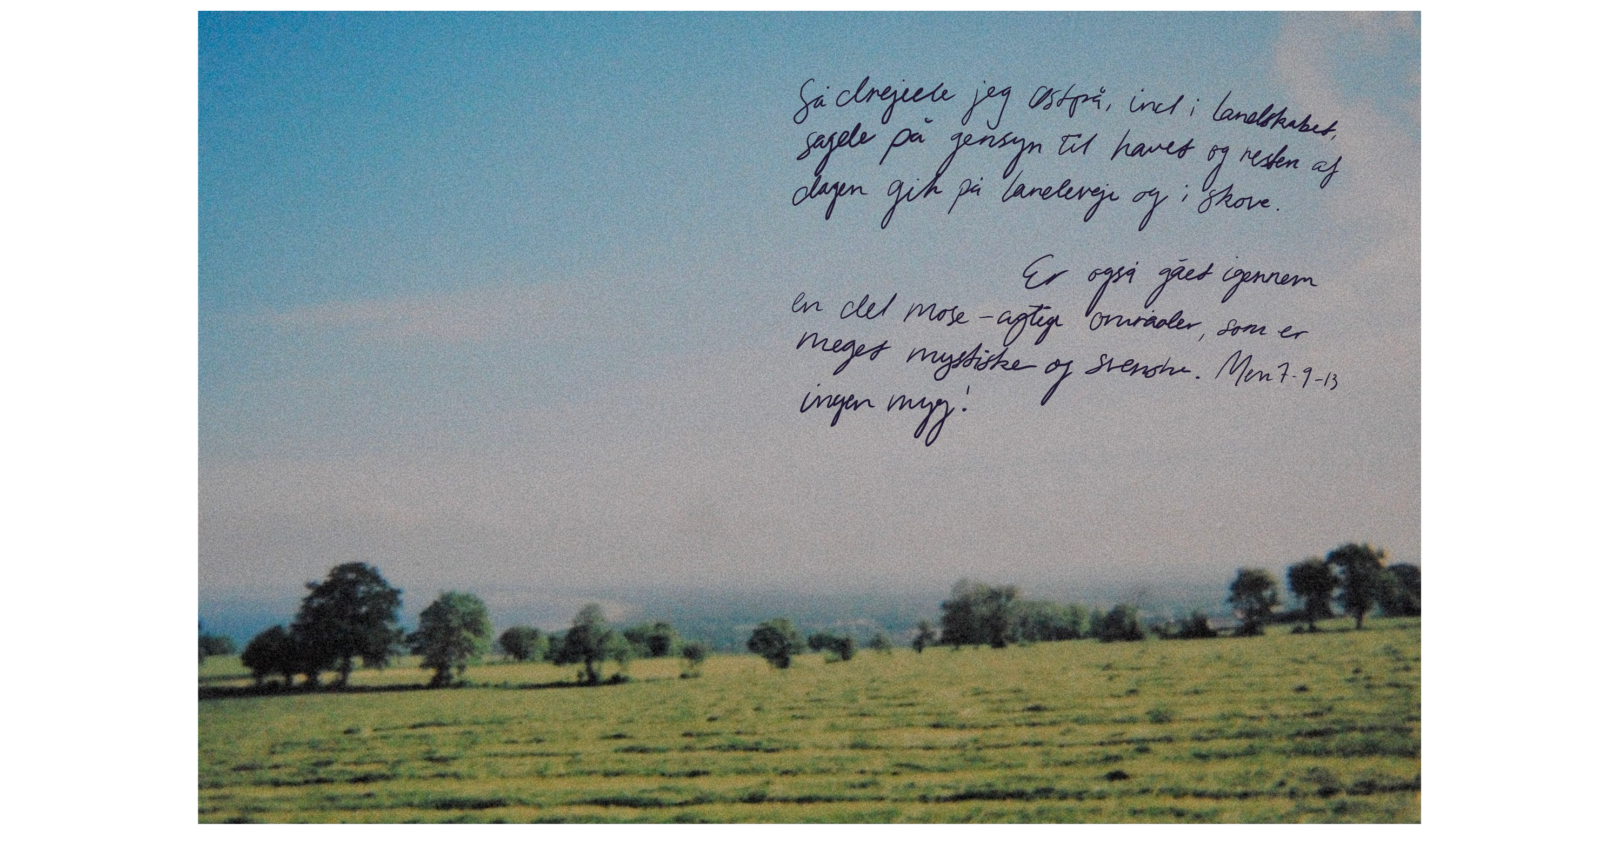 Så drejede jeg østpå, ind i landskabet,
sagde på gensyn til havet og resten af
dagen gik på landeveje og i skove.
Er også gået igennem
en del mose-agtige områder, som er
meget mystiske og svenske. Men 7-9-13
ingen myg!